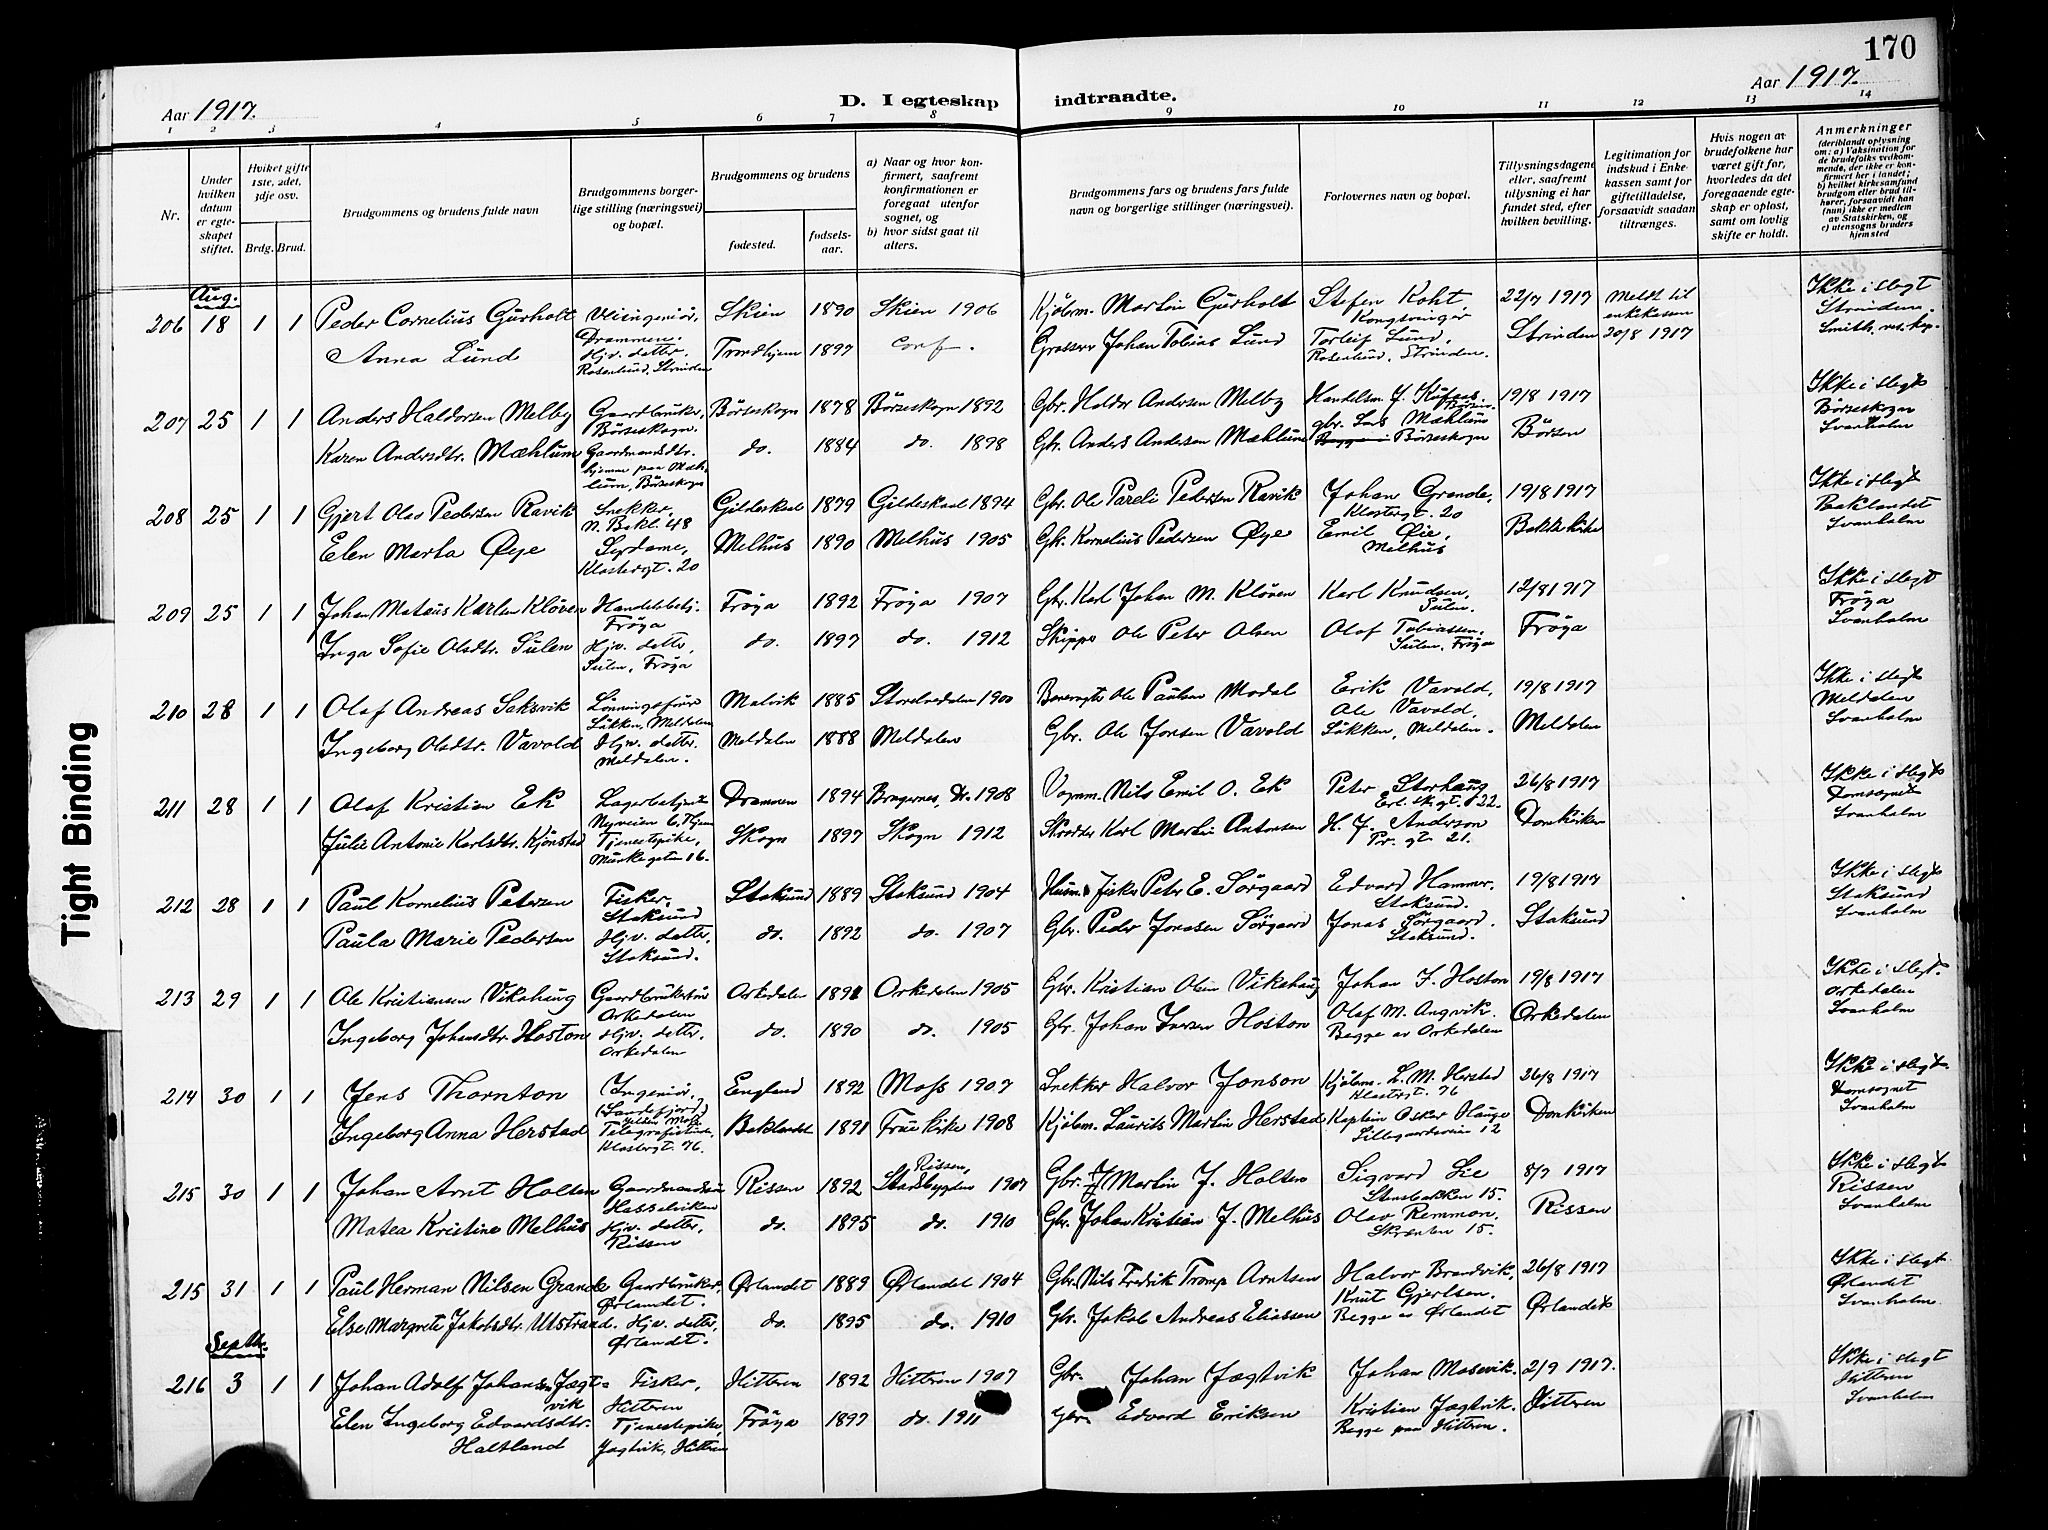 170
Aar 1917.
D. I egteskap
indtraadte.
Aar 1917.
1 2 3 4 5 6 7 8 9 10 11 12 13 14
Nr.
Under hvilken datum er egteskapet stiftet.
Hvilket gifte 1ste, 2det, 3dje osv.
Brdg. Brud.
Brudgommens og brudens fulde navn
Brudgommens borgerlige stilling (næringsvei) og bopæl.
Brudgommens og brudens
fødested.
fødselsaar.
a) Naar og hvor konfirmert, saafremt konfirmationen er foregaat utenfor sognet, og
b) hvor sidst gaat til alters.
Brudgommens fars og brudens fars fulde navn og borgerlige stillinger (næringsvei).
Forlovernes navn og bopæl.
Tillysningsdagene eller, saafremt tillysning ei har fundet sted, efter hvilken bevilling.
Legitimation for indskud i Enkekassen samt for giftetilladelse, forsaavidt saadan tiltrænges.
Hvis nogen av brudefolkene har været gift før, hvorledes da det foregaaende egteskap er opløst, samt om lovlig skifte er holdt.
Anmerkninger (deriblandt oplysning om: a) Vaksination for de brudefolks vedkommende, der ikke er konfirmert her i landet; b) hvilket kirkesamfund brudgom eller brud tilhører, forsaavidt han (hun) ikke er medlem av Statskirken, og c) utensogns bruders hjemsted
Aug.
206 18 1 1 Peder Cornelius Gurholt Veiingeniør, Drammen. Skien 1890 Skien 1906 Kjøbm. Martin Gurholt Stefen Koht Kongsvinger 22/7 1917 Meldt til enkekassen 20/8 1917 Ikke i slegt Strinden
Anna Lund Hjv. datter. Rosenlund, Strinden Trondhjem 1897 conf. Grosserer Johan Tobias Lund Torleif Lund, Rosenlund, Strinden. Strinden
207 25 1 1 Anders Haldorsen Melby Gaardbruker, Börseskogn. Börseskogn 1878 Börseskogn 1892 Gbr. Haldor Andersen Melby 19/8 1917 Ikke i slegt Börseskogn Svanholm
Karen Andersdtr. Mæhlum Gaardmandsdtr. hjemme paa Mæhlum, Börseskogn do. 1884 do. 1898 Gbr. Anders Andersen Mæhlum gbr. Lars Mæhlum Börseskogn Börsen
208 25 1 1 Gjert Olai Pedersen Ravik Snekker, N. Bakl. 48 Gildeskaal 1879 Gildeskaal 1894 Gbr. Ole Pareli Pedersen Ravik Johan Grande, Klostergt. 20 19/8 1917 Ikke i slegt Baklandet Svanholm
Elen Marta Øye Sydame, Klostergt. 20 Melhus 1890 Melhus 1905 Gbr. Kornelius Pedersen Øye Emil Øie, Melhus Bakke kirke
209 25 1 1 Johan Mataus Karlsen Kløven Handelsbetj. Frøya Frøya 1892 Frøya 1907 Gbr. Karl Johan M. Kløven Karl Knudsen, Sulen. 12/8 1917 Ikke i slegt Frøya Svanholm
Inga Sofie Olsdtr. Sulen Hjv. datter, Sulen, Frøya do. 1897 do. 1912 Skipper Ole Peter Olsen Olaf Tobiassen, Sulen, Frøya Frøya
210 28 1 1 Olaf Andreas Saksvik Lønningsfører Løkken, Meldalen Malvik 1885 1900 Ole Paulsen Modal Erik Vavold, 19/8 1917 Ikke i slegt Meldalen Svanholm
Ingeborg Olsdtr. Vavold Hjv. datter. Meldalen. Meldalen 1888 Meldalen Gbr. Ole Jonsen Vavold Ole Vavold, Løkken, Meldalen. Meldalen
211 28 1 1 Olaf Kristian Ek Nyveien 6, Thjem Drammen 1894 Bragernes, Dr. 1908 Vognm. Nils Emil O. Ek Peter Storhaug 26/8 1917 Ikke i slegt Domsognet Svanholm
Julie Antonie Karlsdtr. Kjønstad Tjenestepike, Munkegaten 16. Skogn 1897 Skogn 1912 Skrædder Karl Martin Antonsen H. J. Anderson Pr. gt. 21. Domkirken
212 28 1 1 Paul Kornelius Petersen Fisker, Stoksund Stoksund 1889 Stoksund 1904 Husm. & fisker Peter E. Sørgaard Edvard Hammer. Stoksund. 19/8 1917 Ikke i slegt Stoksund Svanholm
Paula Marie Pedersen Hjv. datter, Stoksund. do. 1892 do. 1907 Gbr. Peder Jonasen Sørgaard Jonas Sørgaard. Stoksund. Stoksund
213 29 1 1 Ole Kristiansen Vikshaug Gaardbrukersøn Orkedalen Orkedalen 1891 Orkedalen 1905 Gbr. Kristian Olsen Vikshaug Johan I. Hoston 19/8 1917 Ikke i slegt. Orkedalen Svanholm
Ingeborg Johansdtr. Hoston Hjv. datter. Orkedalen do. 1890 do. 1905 Gbr. Johan Iversen Hoston Olaf M. Angvik. Begge av Orkedalen Orkedalen
214 30 1 1 Jens Thornton Ingeniør, England 1892 Moss 1907 Snekker Halvor Jonson Kjøbm. L. M. Herstad Klostergt. 76 26/8 1917 Ikke i slegt Domsognet Svanholm
Ingeborg Anna Herstad Telegrafistinde, Klostergt. 76. Baklandet 1891 Frue kirke 1908 Kjøbm. Laurits Martin Herstad Kaptein Oskar Hauge Lillegaardsveien 12 Domkirken
215 30 1 1 Johan Arnt Holten Gaardmandssøn Hasselviken Rissen 1892 Rissen, Stadsbygden 1907 Gbr. Martin J. Holten Sigvard Lie Stensbakken 15. 8/7 1917 Ikke i slegt Rissen Svanholm
Matea Kristine Melhus Hjv. datter, Rissen do. 1895 do. 1910 Gbr. Johan Kristian J. Melhus Olav Remmen, Skrænten 15. Rissen
215 31 1 1 Paul Herman Nilsen Grande Gaardbruker, Ørlandet. Ørlandet 1889 Ørlandet 1904 Gbr. Nils Fredrik Tromp Arntsen Halvor Brandvik, 26/8 1917 Ikke i slegt Ørlandet Svanholm
Else Margrete Jakobsdtr. Utstraad. Hjv. datter, Ørlandet. do. 1895 do. 1910 Gbr. Jakob Andreas Eliassen Knut Gjertsen. Begge av Ørlandet Ørlandet
Septbr.
216 3 1 1 Johan Adolf Johansen Jægtvik Fisker, Hitteren Hitteren 1892 Hitteren 1907 Gbr. Johan Jægtvik Johan Mosevik. 2/9 1917. Ikke i slegt Hitteren Svanholm
Elen Ingeborg Edvardsdtr. Haltland Tjenestepike, Jægtvik, Hitteren Frøya 1897 do. 1911 Gbr. Edvard Eriksen Kristian Jægtvik. Begge paa Hitteren. Hitteren
Tight Binding